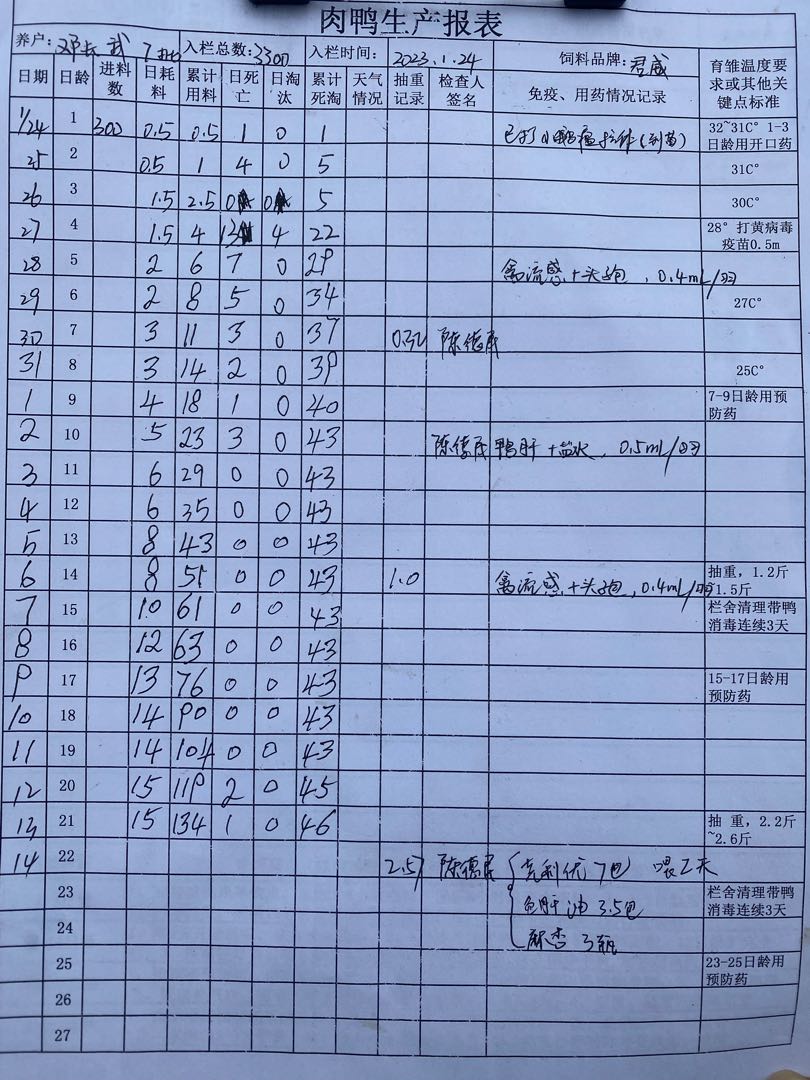 肉鸭生产报表
养户: 入栏总数:3300 入栏时间: 2023.1.24 饲料品牌:君威
日期 日龄 进料数 日耗料 累计用料 日死亡 日淘汰 累计死淘 天气情况 抽重记录 检查人签名 免疫、用药情况记录 育雏温度要求或其他关键点标准
1/24 1 300 0.5 0.5 1 0 1 32~31C° 1-3日龄用开口药
25 2 0.5 1 4 0 5 31C°
26 3 1.5 2.5 0 0 5 30C°
27 4 1.5 4 13 4 22 28° 打黄病毒疫苗0.5m
28 5 2 6 7 0 29 禽流感+头孢,0.4mL/羽
29 6 2 8 5 0 34 27C°
30 7 3 11 3 0 37 0.32 陈德庆
31 8 3 14 2 0 39 25C°
1 9 4 18 1 0 40 7-9日龄用预防药
2 10 5 23 3 0 43 陈德庆 鸭肝+盐水,0.5mL/羽
3 11 6 29 0 0 43
4 12 6 35 0 0 43
5 13 8 43 0 0 43
6 14 8 51 0 0 43 1.0 禽流感+头孢,0.4mL/羽 抽重，1.2斤~1.5斤
7 15 10 61 0 0 43 栏舍清理带鸭消毒连续3天
8 16 12 63 0 0 43
9 17 13 76 0 0 43 15-17日龄用预防药
10 18 14 90 0 0 43
11 19 14 104 0 0 43
12 20 15 119 2 0 45
13 21 15 134 1 0 46 抽 重，2.2斤~2.6斤
14 22 2.57 陈德庆 克利优 7包 喂2天
23 鱼肝油 3.5包 栏舍清理带鸭消毒连续3天
24 麻杏 3瓶
25 23-25日龄用预防药
26
27